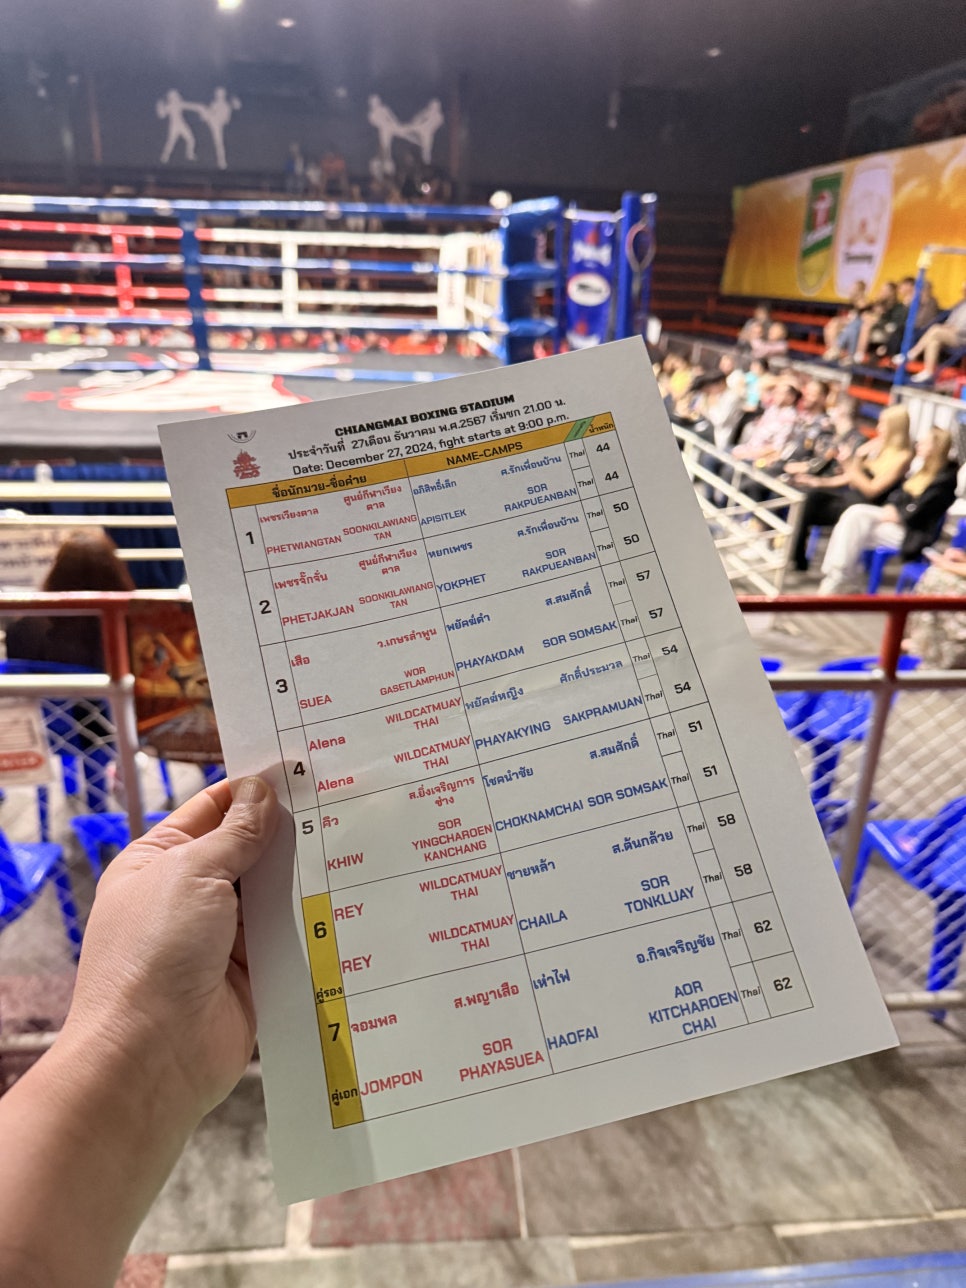 CHIANGMAI BOXING STADIUM
ประจำวันที่ 27เดือน ธันวาคม พ.ศ.2567 เริ่มชก 21.00 น.
Date: December 27, 2024, fight starts at 9:00 p.m.
ชื่อนักมวย-ชื่อค่าย NAME-CAMPS น้ำหนัก
1 เพชรเวียงตาล ศูนย์กีฬาเวียงตาล อภิสิทธิ์เล็ก ศ.รักเพื่อนบ้าน Thai 44
PHETWIANGTAN SOONKILAWIANG TAN APISITLEK SOR RAKPUEANBAN Thai 44
2 เพชรจั๊กจั่น ศูนย์กีฬาเวียงตาล หยกเพชร ศ.รักเพื่อนบ้าน Thai 50
PHETJAKJAN SOONKILAWIANG TAN YOKPHET SOR RAKPUEANBAN Thai 50
3 เสือ ว.เกษรลำพูน พยัคฆ์ดำ ส.สมศักดิ์ Thai 57
SUEA WOR GASETLAMPHUN PHAYAKDAM SOR SOMSAK Thai 57
4 Alena WILDCATMUAY THAI พยัคฆ์หญิง ศักดิ์ประมวล Thai 54
Alena WILDCATMUAY THAI PHAYAKYING SAKPRAMUAN Thai 54
5 คิว ส.ยิ่งเจริญการช่าง โชคนำชัย ส.สมศักดิ์ Thai 51
KHIW SOR YINGCHAROEN KANCHANG CHOKNAMCHAI SOR SOMSAK Thai 51
6 REY WILDCATMUAY THAI ชายหล้า ส.ต้นกล้วย Thai 58
คู่รอง REY WILDCATMUAY THAI CHAILA SOR TONKLUAY Thai 58
7 จอมพล ส.พญาเสือ เห่าไฟ อ.กิจเจริญชัย Thai 62
คู่เอก JOMPON SOR PHAYASUEA HAOFAI AOR KITCHAROEN CHAI Thai 62